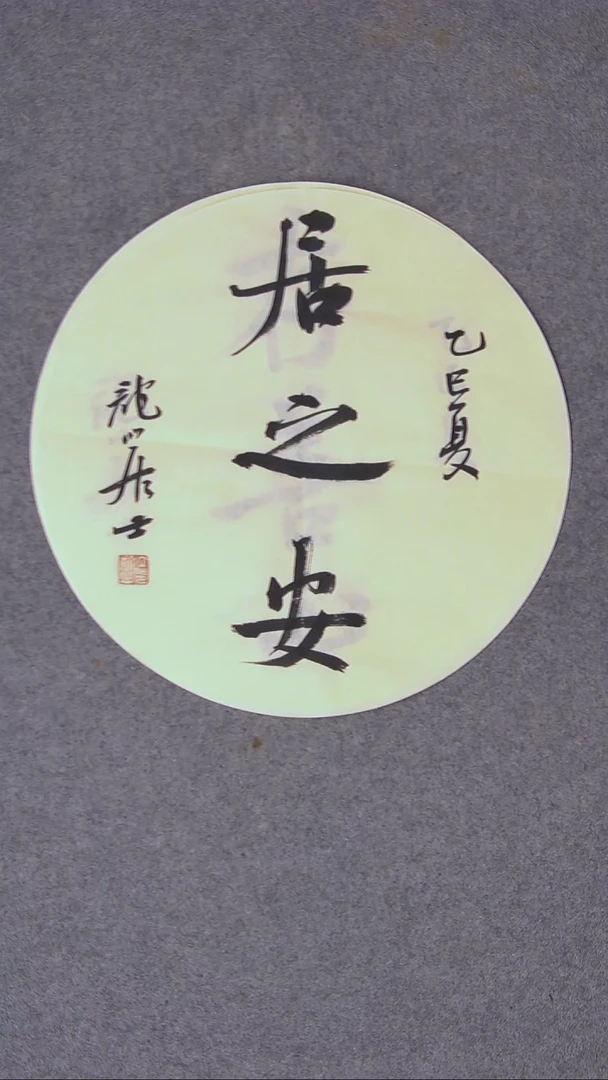 乙巳夏
居之安
龍川居士